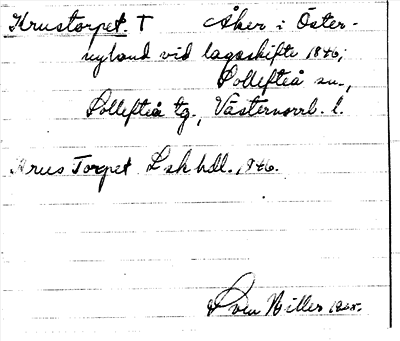 Krustorpet. T Åker i Öster-
nyland vid lagaskifte 1846;
Sollefteå sn.,
Sollefteå tg., Västernorrl. l.
Krus Torpet L sk hdl. 1846.
Sven Hillers